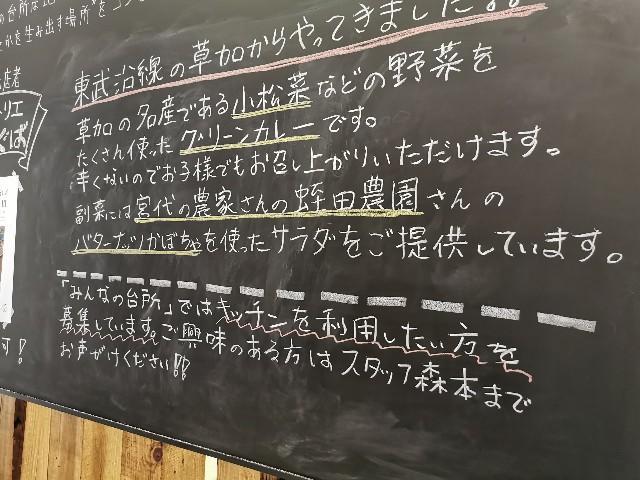 の台所な
を生み出す場所"を
東武沿線の草加からやってきました!!
草加の名産である小松菜などの野菜を
たくさん使ったグリーンカレーです。
辛くないのでお子様でもお召し上がりいただけます。
副菜には宮代の農家さんの蛭田農園さんの
バターナッツかぼちゃを使ったサラダをご提供しています。
「みんなの台所」ではキッチンを利用したい方を
募集しています。ご興味のある方はスタッフ森本まで
お声がけください!!
店者
トリエ
ば